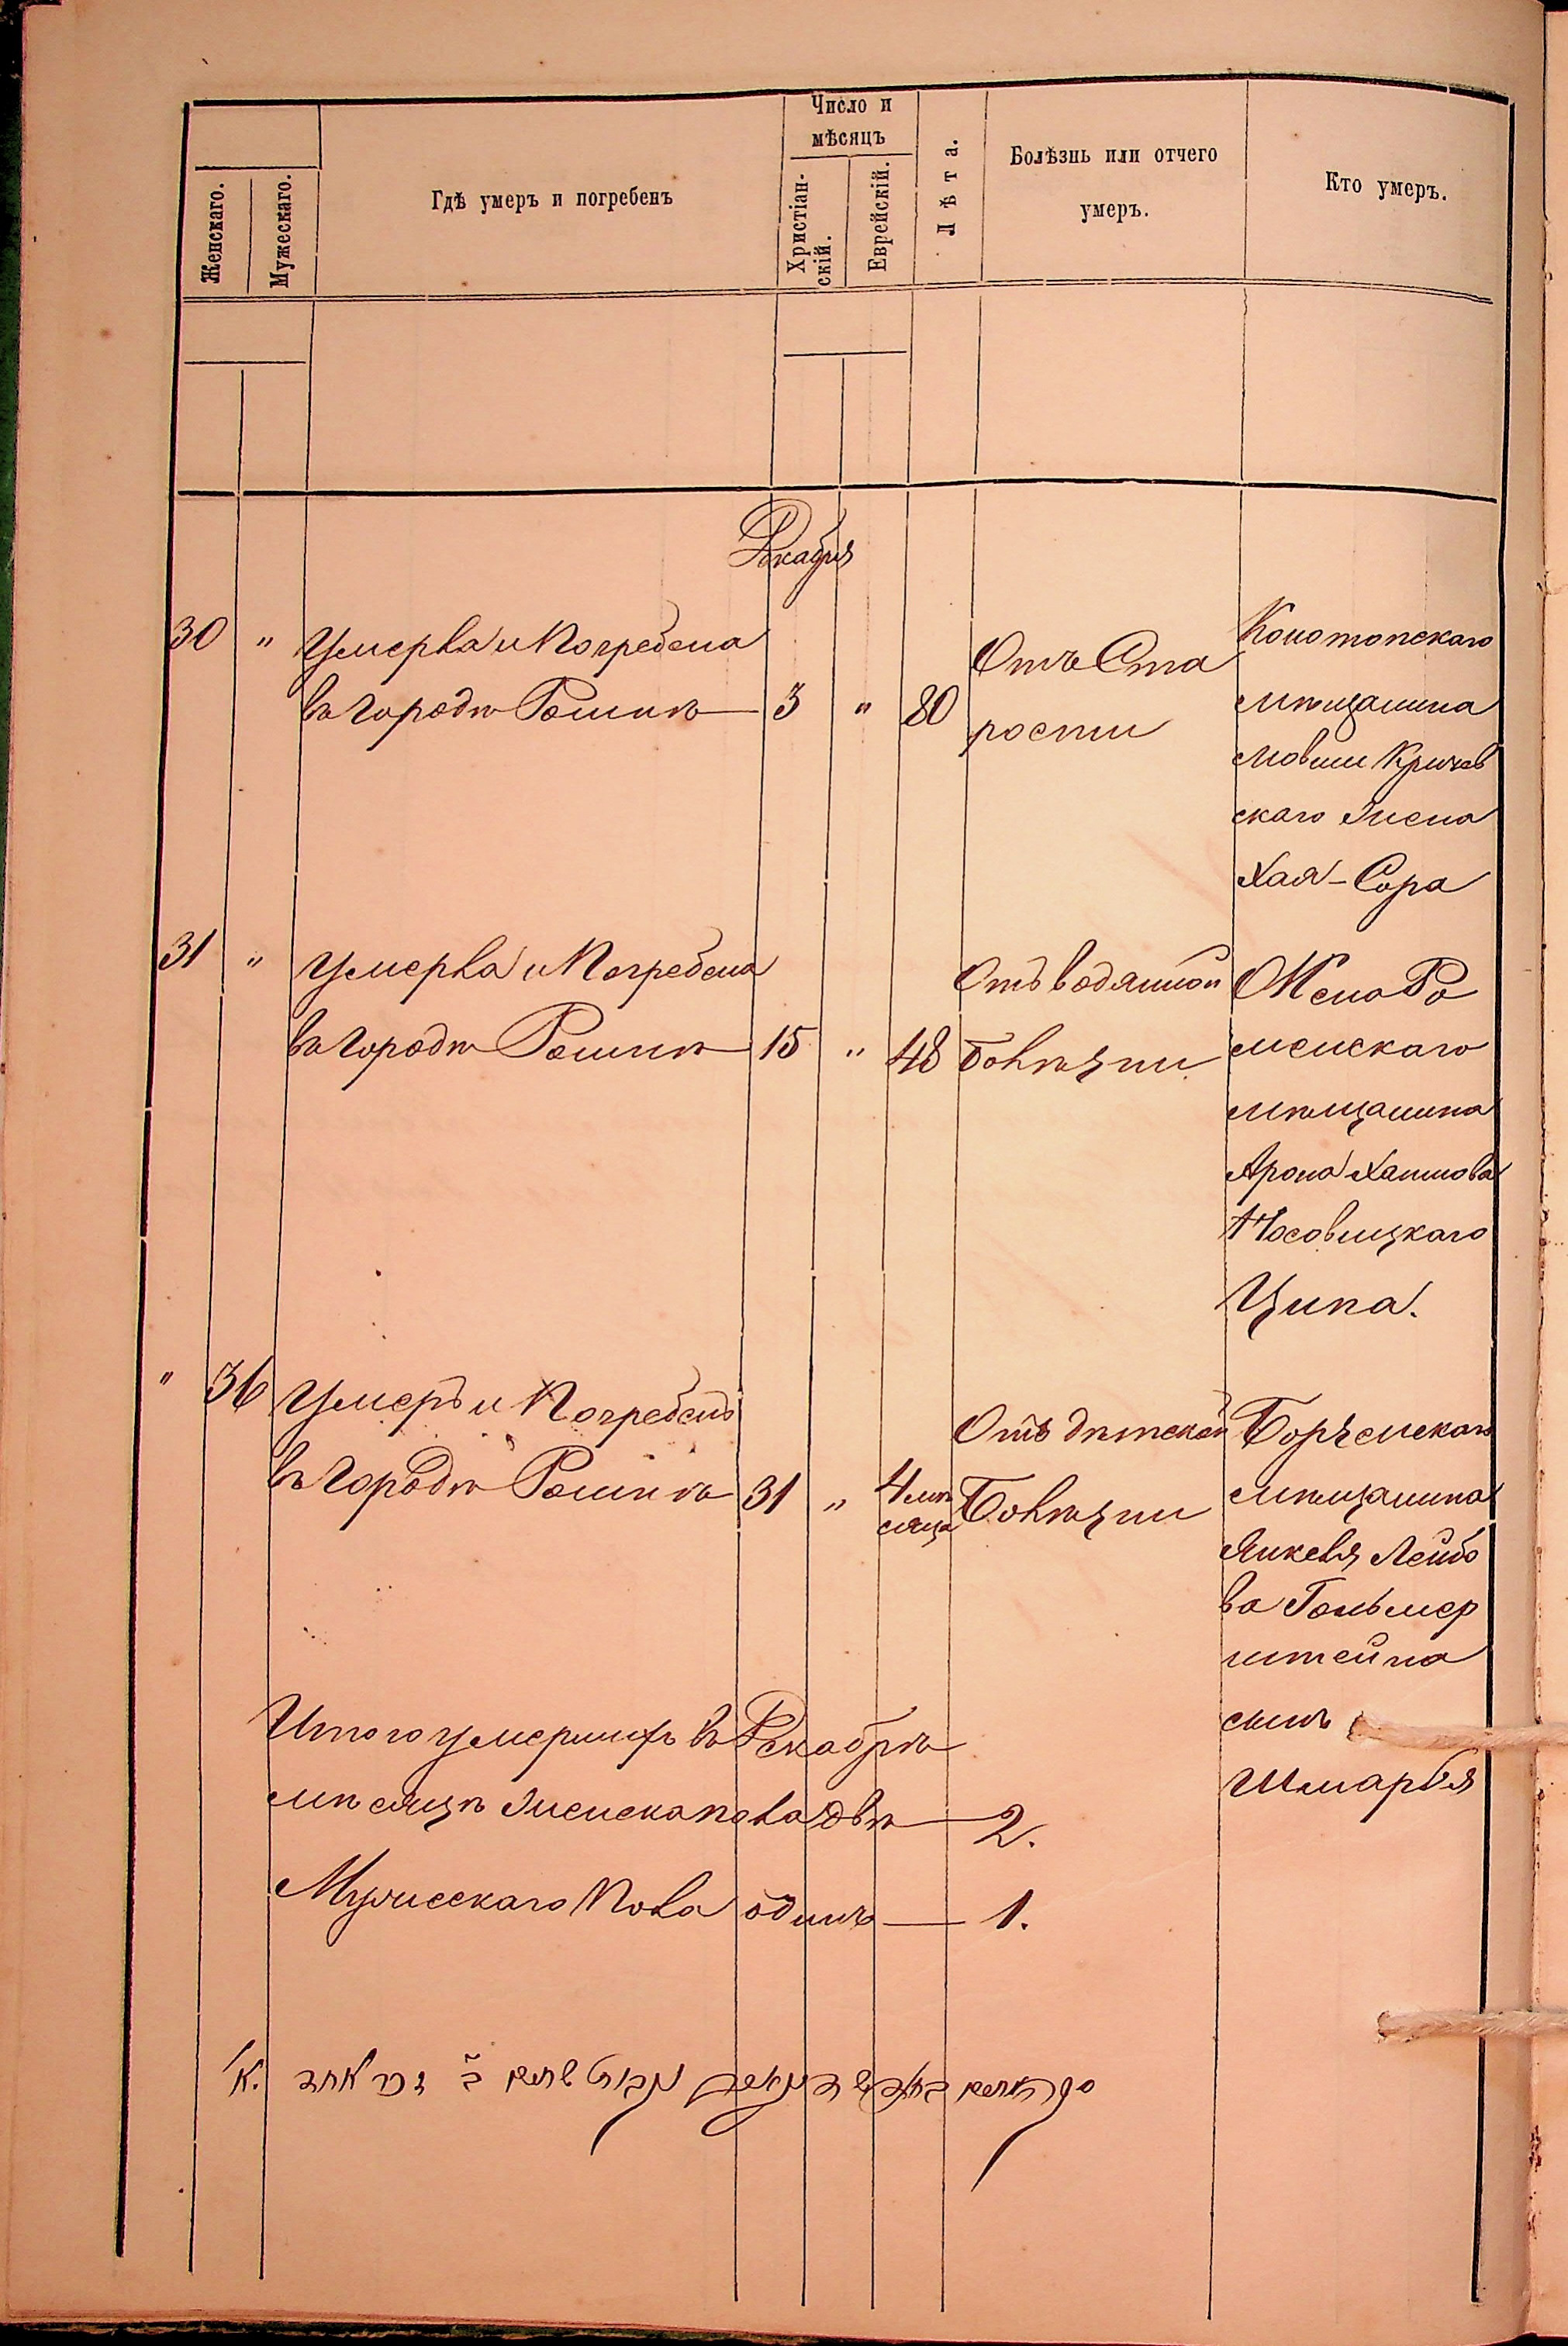 Число и
мѣсяцъ
Женскаго.
Мужескаго.
Гдѣ умеръ и погребенъ
Христіан-
скій.
Еврейскій.
Лѣта.
Болѣзнь или отчего
умеръ.
Кто умеръ.
Декабря
30 " Умерла и Погребена
въ городѣ Ромнѣ — 3 " 80
Отъ Ста
рости
Конотопскаго
мѣщанина
Мовши Кричев
скаго жена
Хая-Сора
31 " Умерла и Погребена
въ городѣ Ромнѣ — 15 " 48
Отъ водяной
болѣзни
Жена Ро
менскаго
мѣщанина
Арона Хаимова
Носовицкаго
Ципа.
" 36 Умеръ и Погребенъ
въ городѣ Ромнѣ 31 " 4 мѣ
сяца
Отъ дѣтской
Болѣзни
Борзенскаго
мѣщанина
Янкеля Лейбо
ва Гальмер
штейна
сынъ
Шмарья
Итого умершихъ въ Декабрѣ
мѣсяцѣ женска пола двѣ — 2.
Мужескаго Пола одинъ — 1.